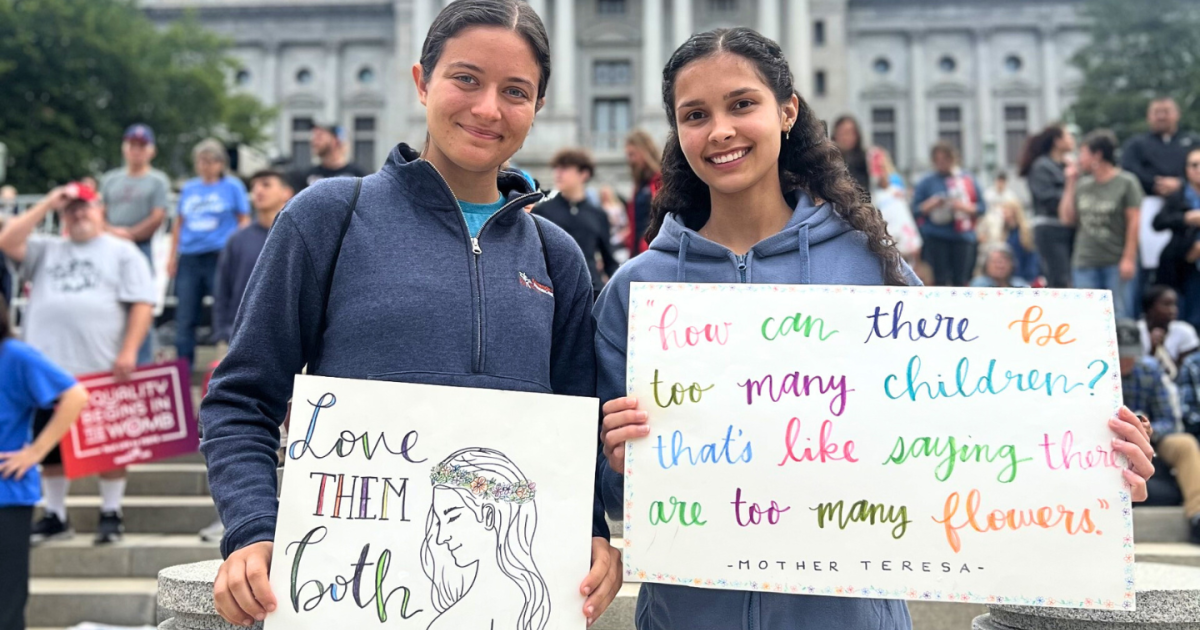 Love
THEM
both
"how can there be
too many children?
that's like saying there
are too many flowers."
-MOTHER TERESA-
EQUALITY
BEGINS IN
THE WOMB